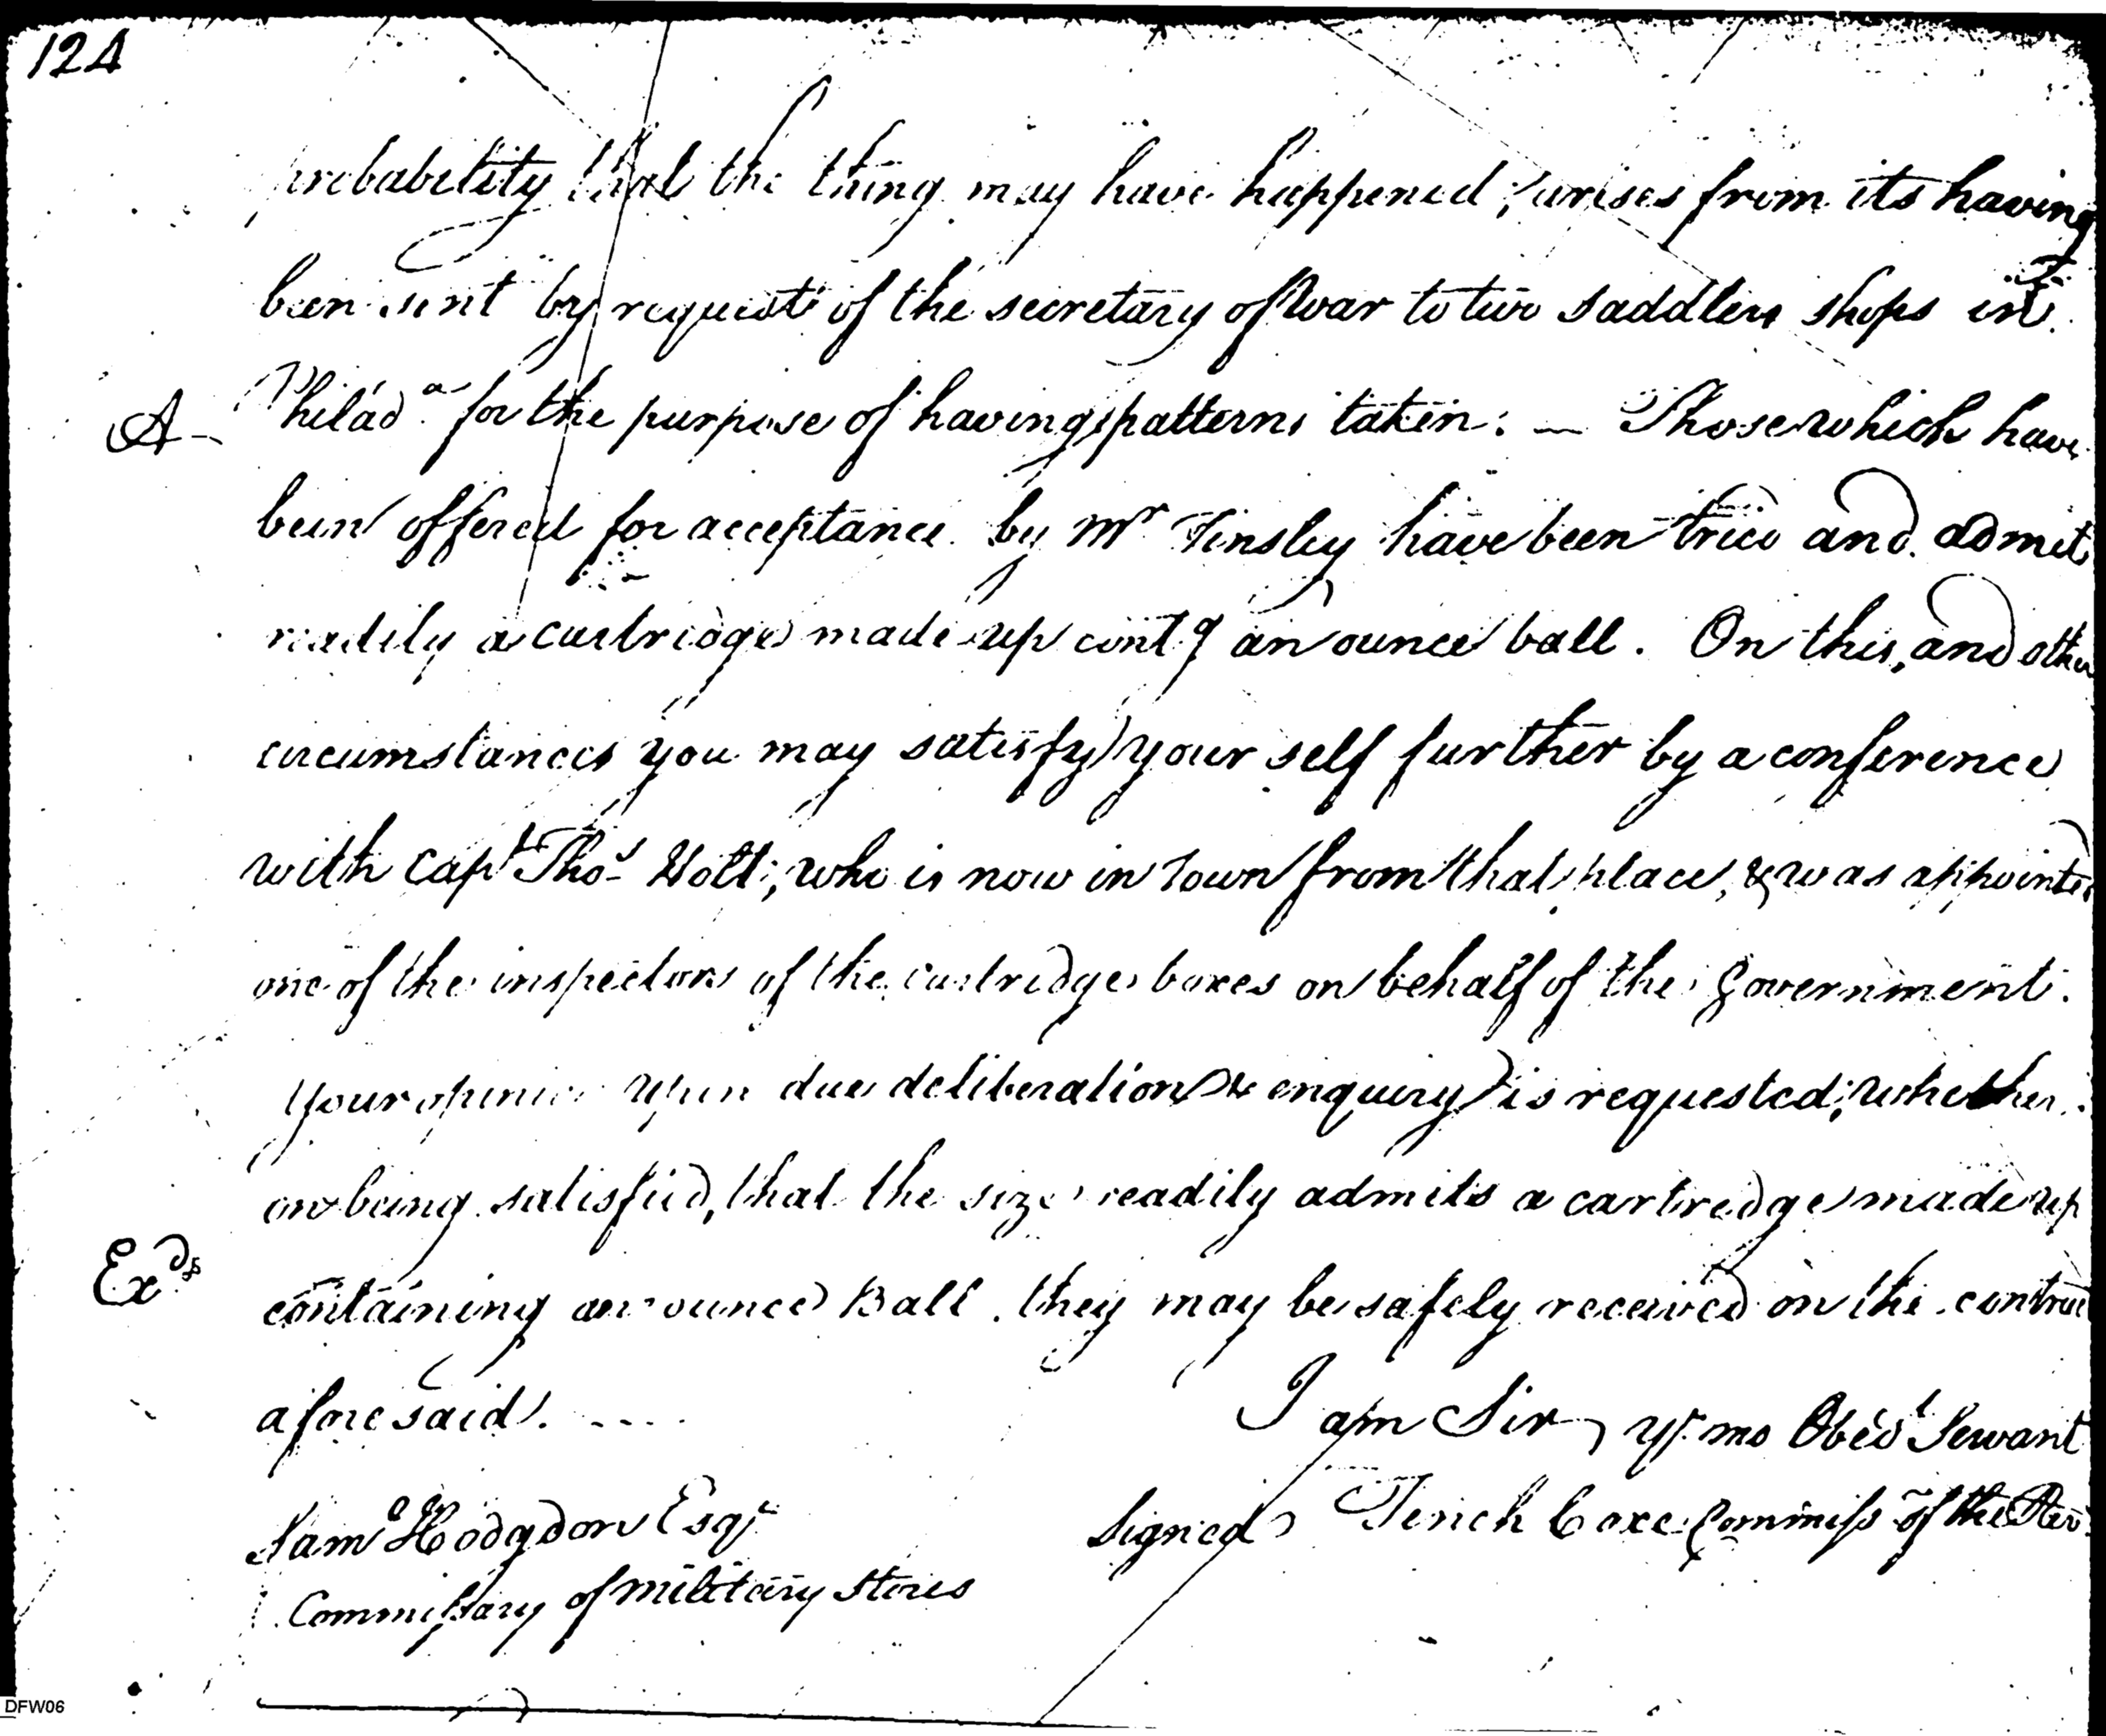 124
probability that the thing may have happened, arises from its having
been sent by request of the secretary of War to two saddlers shops in
A - Philada. for the purpose of having patterns taken: — Those which have
been offered for acceptance by Mr Tinsley have been tried and admit
readily a cartridge made up contg an ounce ball. On this, and other
circumstances you may satisfy your self further by a conference
with Capt Thos Holt; who is now in Town from that place, & was appointed
one of the inspectors of the cartridge boxes on behalf of the Government.
Your opinion upon due deliberation & enquiry is requested; whether
on being satisfied, that the size readily admits a cartridge made up
Exd containing an ounce Ball. they may be safely received on the contract
aforesaid. ----
I am Sir, yr. mo Obedt Servant
Saml Hodgdon Esqr
Signed Tench Coxe Commissr of the Rev.
Commissary of military Stores
DFW06